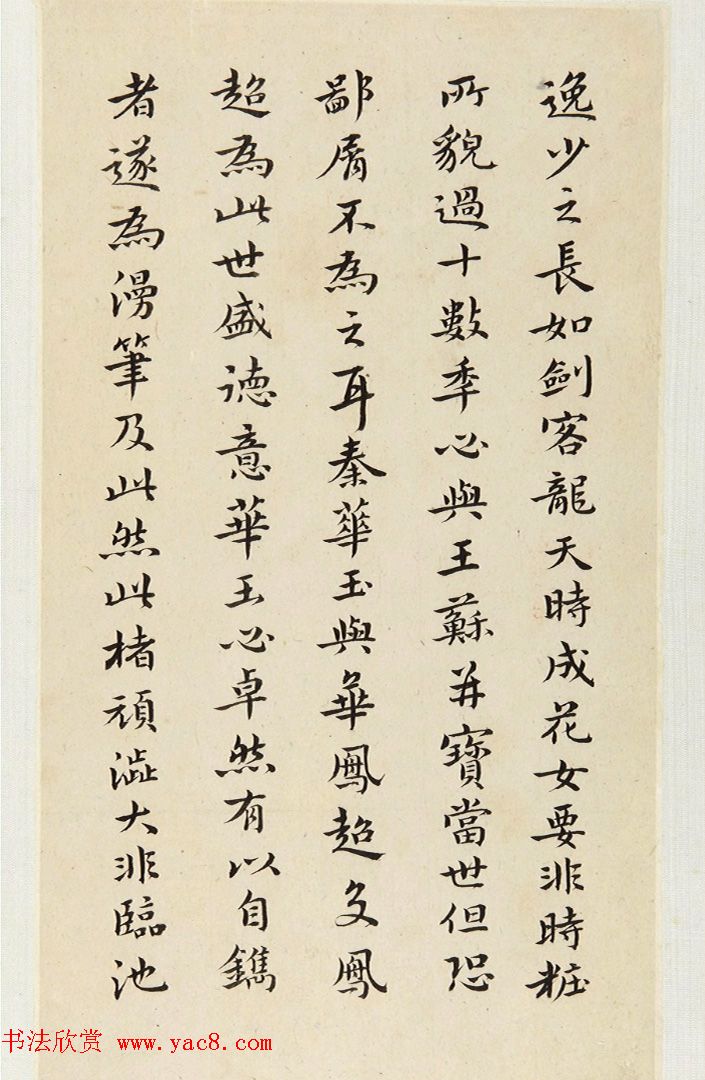 逸少之長如劍客龍天時成花女要非時粧
所貌過十數季必與王蘇并寶當世但恐
鄙屑不為之耳秦華玉與華鳳超友鳳
超為此世盛德意華玉必卓然有以自鐫
者遂為漫筆及此然此楮頑澁大非臨池
书法欣赏 www.yac8.com